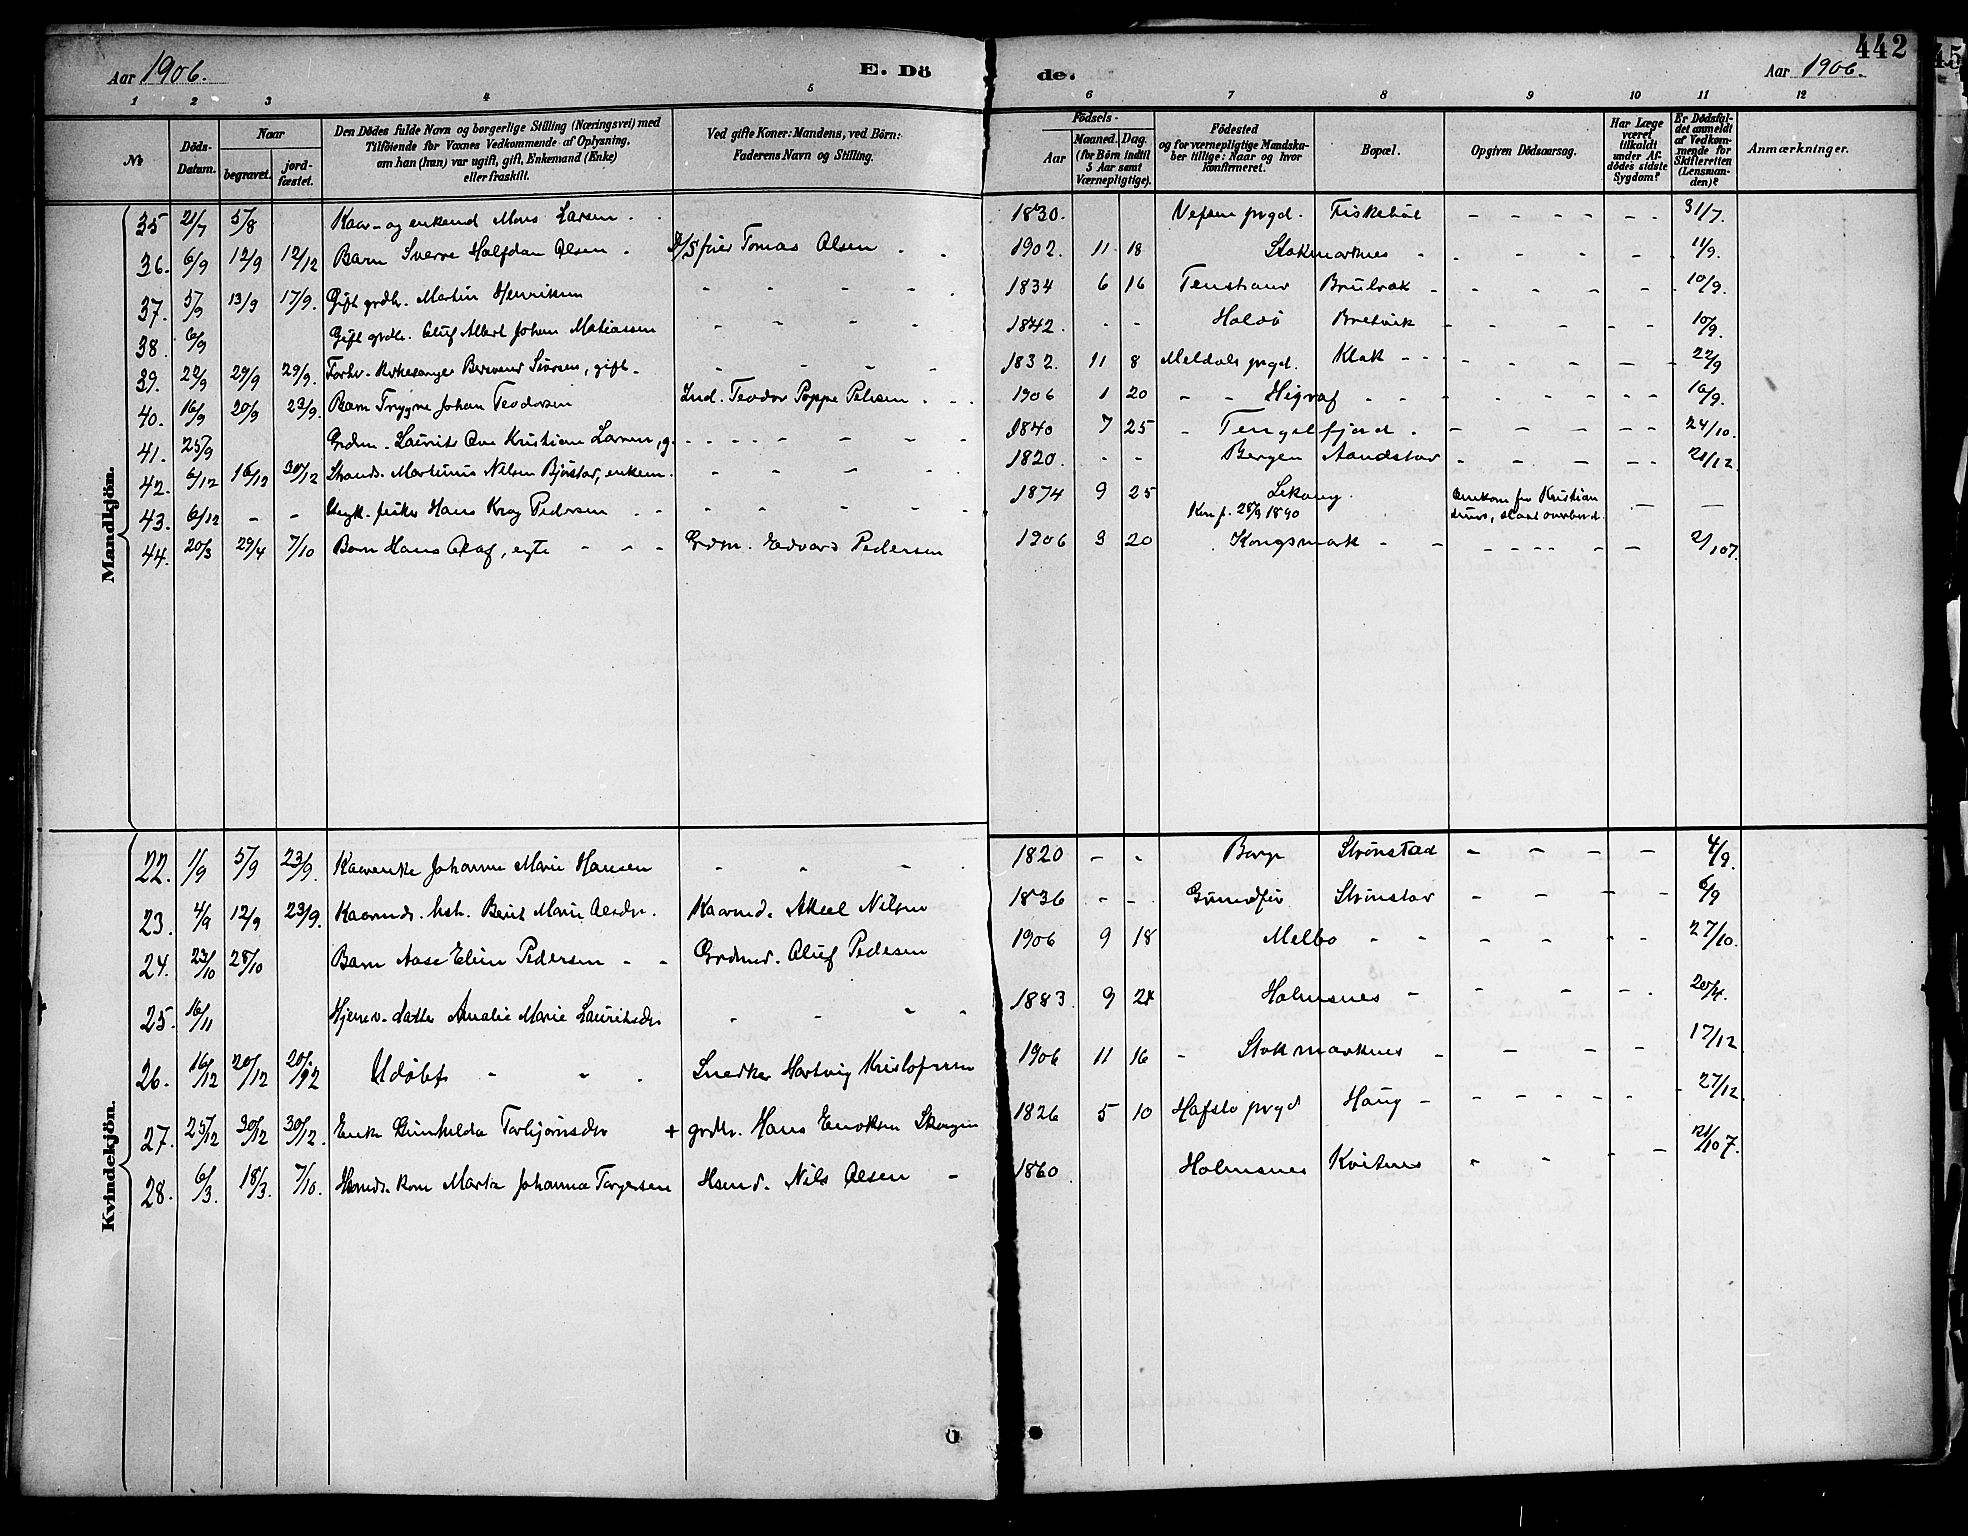 442
45
Aar 1906.
E. Dö
de.
Aar 1906.
1 2 3 4 5 6 7 8 9 10 11 12
№
Döds-
Datum.
Naar
begravet.
jord-
fæstet.
Den Dödes fulde Navn og borgerlige Stilling (Næringsvei) med
Tilföiende for Voxnes Vedkommende af Oplysning,
om han (hun) var ugift, gift, Enkemand (Enke)
eller fraskilt.
Ved gifte Koner: Mandens, ved Börn:
Faderens Navn og Stilling.
Födsels-
Aar
Maaned. Dag.
(for Börn indtil
5 Aar samt
Værnepligtige).
Födested
og for værnepligtige Mandska-
ber tillige: Naar og hvor
konfirmeret.
Bopæl.
Opgiven Dödsaarsag.
Har Læge
været
tilkaldt
under Af-
dödes sidste
Sygdom?
Er Dödsfal-
det anmeldt
af Vedkom-
mende for
Skifteretten
(Lensman-
den)?
Anmærkninger.
Mandkjön.
35 21/7 5/8 Kaar- og enkemd Mons Larsen - - 1830. Vefsen prgd. Fiskebøl - - - - - - 31/7.
36. 6/9 12/9 12/12 Barn Sverre Halfdan Olsen - D/S fører Tomas Olsen - - 1902. 11 18 Stokmarknes - - - - - - 11/9.
37. 5/9 13/9 17/9. Gift grdbr. Martin Henriksen - - - - 1834 6 16 Brulvak - - - - - - 10/9.
38. 6/9 Gift grdbr. Oluf Albert Johan Matiassen - - - - 1842. - - Haldø Bretvik - - - - - - 10/9.
39. 22/9 29/9 29/9. Forhv. Kirkesanger Sivrsen, gift - - - - 1832. 11 8 Meldals prgd. Klak - - - - - - 22/9
40. 16/9 20/9 23/9. Barn Trygve Johan Teodorsen Ind. Teodor Poppe Pelisen - - - 1906 1 20 - - Higrav - - - - - - - 16/9.
41. 25/9 Grdm. Laurits Ove Kristian Larsen, g. - - - - - - 1840 7 25 - Tengelfjord - - - - - - 24/10.
42. 6/12 16/12 30/12 Strands. Martinus Nilsen Bjørstad, enkem. - - - - 1820. - - Bergen Aandstad - - - - - 21/12.
43. 6/12 - - Ungk. fisker Hans Krog Pedersen - - - - - - 1874 9 25 Lekang. Omkom fra Kristian - -
Konf. 28/9 1890
44. 20/3 29/4 7/10 Barn Hans Olaf, egte - - - Grdm. Edvard Pedersen 1906 3 20 Kongsmark - - - - - - - - 2/1 07.
Kvindekjön.
22. 1/9 5/9 23/9. Kaarenke Johanne Marie Hansen - - - 1820 - - Borge Strønstad - - - - 4/9.
23. 4/9 12/9 23/9. Kaarmds. hst. Berit Marie Olsdr. Kaarmd. Aksel Nilsen 1836 - - Grundfør Strønstad - - - - 6/9
24. 23/10 28/10 Barn Aase Elise Pedersen - - Grdmd. Oluf Pedersen 1906 9 18 Melbo - - - - - - 27/10.
25. 16/11 Hjemmev. datter Amalie Marie Lauritsdr - - - - 1883. 9 24 Holmsnes - - - - - 20/4.
26. 16/12 20/12 20/12 Udøbt - - - Snedker Hartvig Kristofersen 1906 11 16 - Stokmarknes - - - - - 17/12
27. 25/12 30/12 30/12. Enke Gunhilda Torbjørnsdr + grdbr. Hans Enoksen 1826 5 10 Hafslo prgd Haug - - - - - - - 27/12.
28. 6/3 18/3. 7/10. Hsmds. kone Marta Johanna Torgersen Hsmd. Nils Olsen - 1860 Holmsnes Kvitnes - - - -